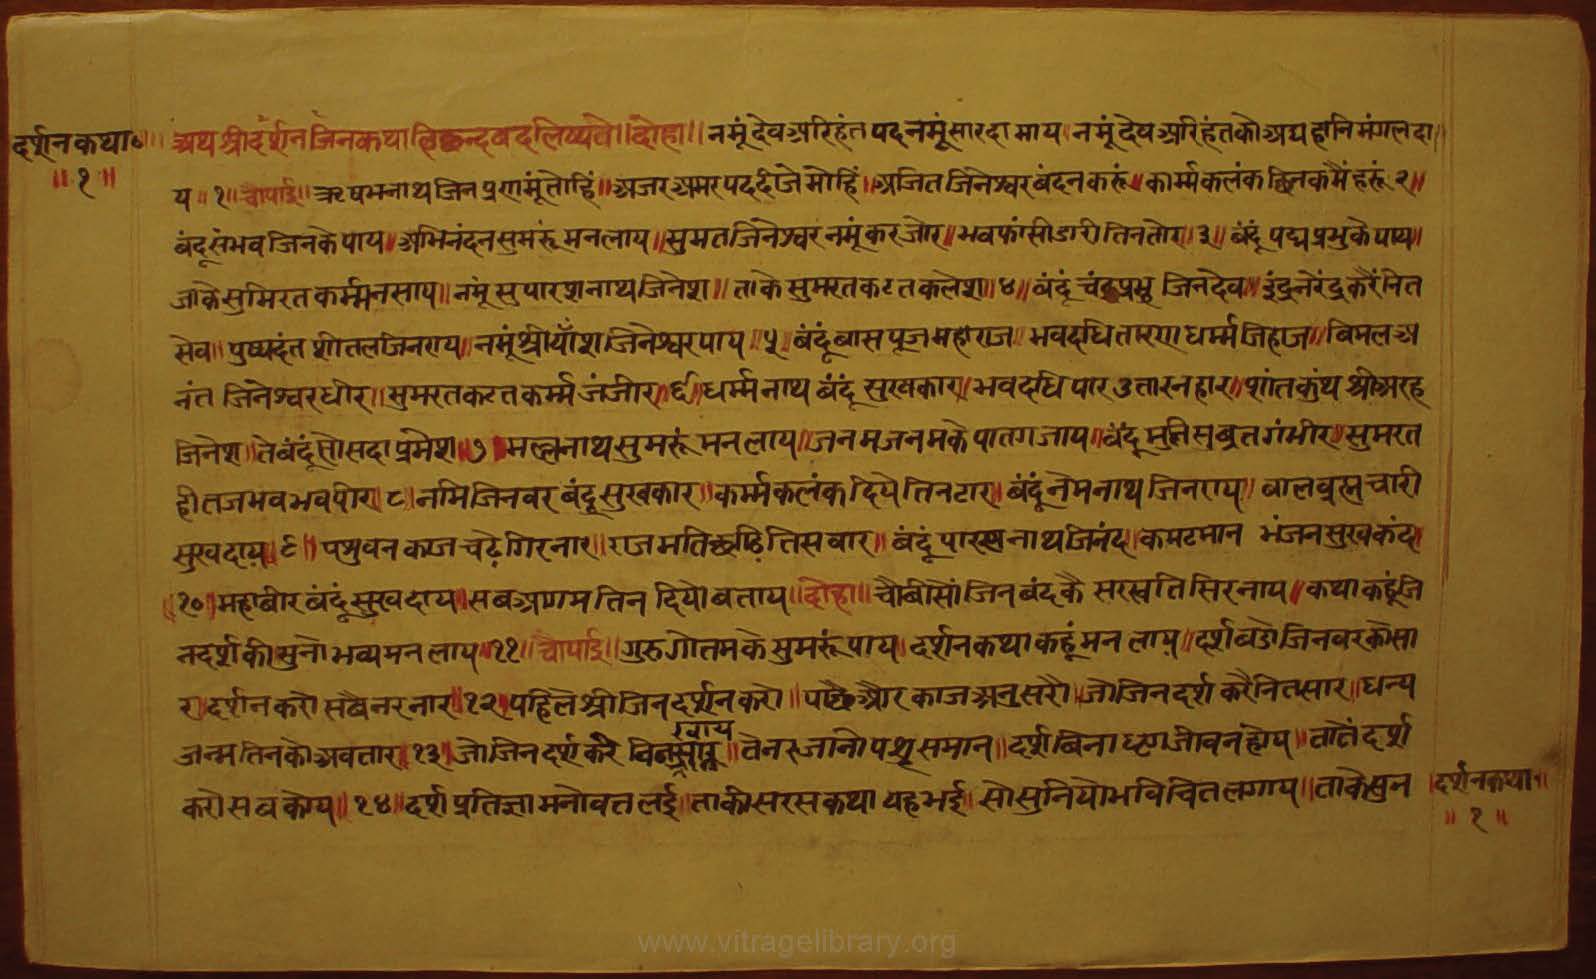 दर्शनकथा॰॥ अथ श्रीदर्शनजिनकथा लिख्यते॥दोहा॥ नमूंदेवअरिहंतपदनमूंसारदामाय।नमूंदेवअरिहंतकोअघहानिमंगलदा
॥१॥ य॥१॥चौपाई॥ऋषभनाथजिनप्रणमूंतोहि॥अजरअमरपददीजेमोहिं॥अजितजिनेश्वरबंदनकरूं॥कार्म्मकलंकछिनकमैंहरूं२॥
बंदूसंभवजिनकेपाय॥अभिनंदनसुमरूंमनलाय॥सुमतजिनेश्वरनमूंकरजोर॥भवफांसीडारीतिनतोर॥३॥बंदूंपद्मप्रभुकेपाय॥
जाकेसुमिरतकर्म्मनसाय॥नमूंसुपारशनाथजिनेश॥ताकेसुमरतकटतकलेश॥४॥बंदूंचंद्रप्रभुजिनदेव॥इंद्रनरेंद्रकरैंनित
सेव॥पुष्पदंतशीतलजिनराय॥नमूंश्रीयाँशजिनेश्वरपाय॥५॥बंदूंबासपूजमहाराज॥भवदधितारणधर्म्मजिहाज॥बिमलअ
नंतजिनेश्वरधीर॥सुमरतकटतकर्म्मजंजीर॥६॥धर्म्मनाथबंदूंसुखकार॥भवदधिपारउतारनहार॥शांतकुंथश्रीअरह
जिनेश॥तेबंदूंसोसदाप्रमेश॥७॥मल्लनाथसुमरूंमनलाय॥जनमजनमकेपातगजाय॥बंदूमुनिसुब्रतगंभीर॥सुमरत
हीतजभवभवपीर॥८॥नमिजिनवरबंदूसुखकार॥कर्म्मकलंकदियेतिनटार॥बंदूंनेमनाथजिनराय॥बालब्रह्मचारी
सुखदाय॥९॥पशुवनकाजचढ़ेगिरनार॥राजमतिछांड़ितिसबार॥बंदूंपारसनाथजिनंद॥कमटमानभंजनसुखकंद॥
॥१०॥महाबीरबंदूंसुखदाय॥सबआगमतिनदियोबताय॥दोहा॥चौबीसोंजिनबंदकैसरस्वतिसिरनाय॥कथाकहूंजि
नदर्शकीसुनोभव्यमनलाय॥११॥चौपाई॥गुरुगोतमकेसुमरूंपाय॥दर्शनकथाकहूंमनलाय॥दर्शबडोजिनवरकोसा
र॥दर्शनकरोसबैनरनार॥१२॥पहिलेश्रीजिनदर्शनकरो॥पाछैऔरकाजअनुसरो॥जोजिनदर्शकरैनितसार॥धन्य
जन्मतिनकोअवतार॥१३॥जोजिनदर्शकरेबिन खाय॥तेनरजानोपशुसमान॥दर्शबिना जीवनहोय॥तातेंदर्श
करोसबकोय॥१४॥दर्शप्रतिज्ञामनोवतलई॥ताकीसरसकथायहभई॥सोसुनियोभविचितलगाय॥ताकेसुन
दर्शनकथा॰॥
॥१॥
www.vitragelibrary.org